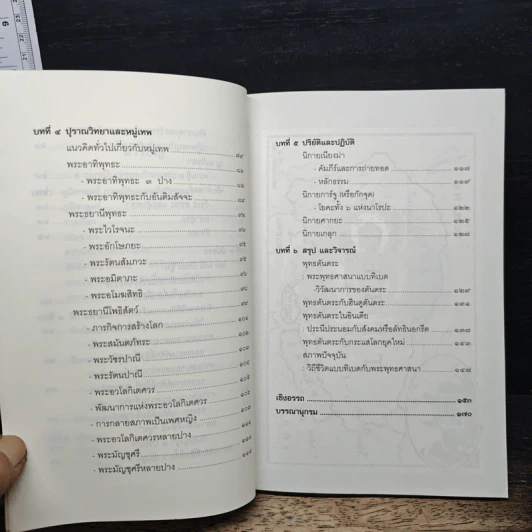 บทที่ ๔ ปุราณวิทยาและหมู่เทพ
แนวคิดทั่วไปเกี่ยวกับหมู่เทพ
พระอาทิพุทธะ
- พระอาทิพุทธะ ๓ ปาง
- พระอาทิพุทธะกับอันติมสัจจะ
พระธยานีพุทธะ
- พระไวโรจนะ
- พระอักโษภยะ
- พระรัตนสัมภวะ
- พระอมิตาภะ
- พระอโมฆสิทธิ
พระธยานีโพธิสัตว์
- ภารกิจการสร้างโลก
- พระสมันตภัทระ
- พระวัชรปาณี
- พระรัตนปาณี
- พระอวโลกิเตศวร
- พัฒนาการแห่งพระอวโลกิเตศวร
- การกลายสภาพเป็นเพศหญิง
- พระอวโลกิเตศวรหลายปาง
- พระมัญชุศรี
- พระมัญชุศรีหลายปาง
บทที่ ๕ ปริยัติและปฏิบัติ
นิกายเนียงม่า
- คัมภีร์และการถ่ายทอด ๑๑๗
- หลักธรรม ๑๑๙
นิกายการ์จู (หรือกักจุด) ๑๒๒
- โยคะทั้ง ๖ แห่งนาโรปะ ๑๒๒
นิกายศากยะ ๑๒๗
นิกายเกลุก ๑๒๘
บทที่ ๖ สรุป และวิจารณ์
พุทธตันตระ
: พระพุทธศาสนาแบบทิเบต
-วิวัฒนาการของตันตระ ๑๒๙
พุทธตันตระกับฮินดูตันตระ ๑๓๑
พุทธตันตระในอินเดีย
: ประนีประนอมกับสังคมหรือลัทธินอกรีต ๑๓๘
พุทธตันตระกับกระแสโลกยุคใหม่ ๑๔๓
สภาพปัจจุบัน
- วิถีชีวิตแบบทิเบตกับพระพุทธศาสนา ๑๔๘
เชิงอรรถ ๑๕๓
บรรณานุกรม ๑๗๐